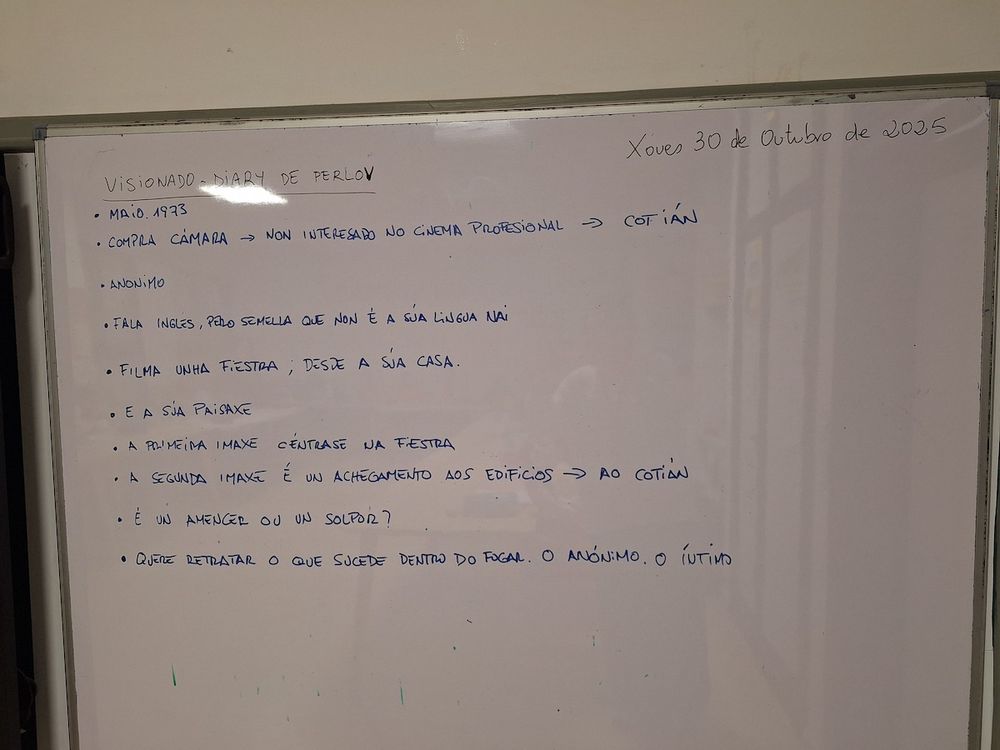 Xoves 30 de Outubro de 2025
VISIONADO - DIARY DE PERLOV
• MAIO. 1973
• COMPRA CÁMARA → NON INTERESADO NO CINEMA PROFESIONAL → COTIÁN
• ANONIMO
• FALA INGLES, PERO SEMELLA QUE NON É A SÚA LINGUA NAI
• FILMA UNHA FIESTRA, DESDE A SÚA CASA.
• E A SÚA PAISAXE
• A PRIMEIRA IMAXE CÉNTRASE NA FIESTRA
• A SEGUNDA IMAXE É UN ACHEGAMENTO AOS EDIFICIOS → AO COTIÁN
• É UN AMENCER OU UN SOLPOR?
• QUERE RETRATAR O QUE SUCEDE DENTRO DO FOGAR. O ANÓNIMO. O ÍNTIMO